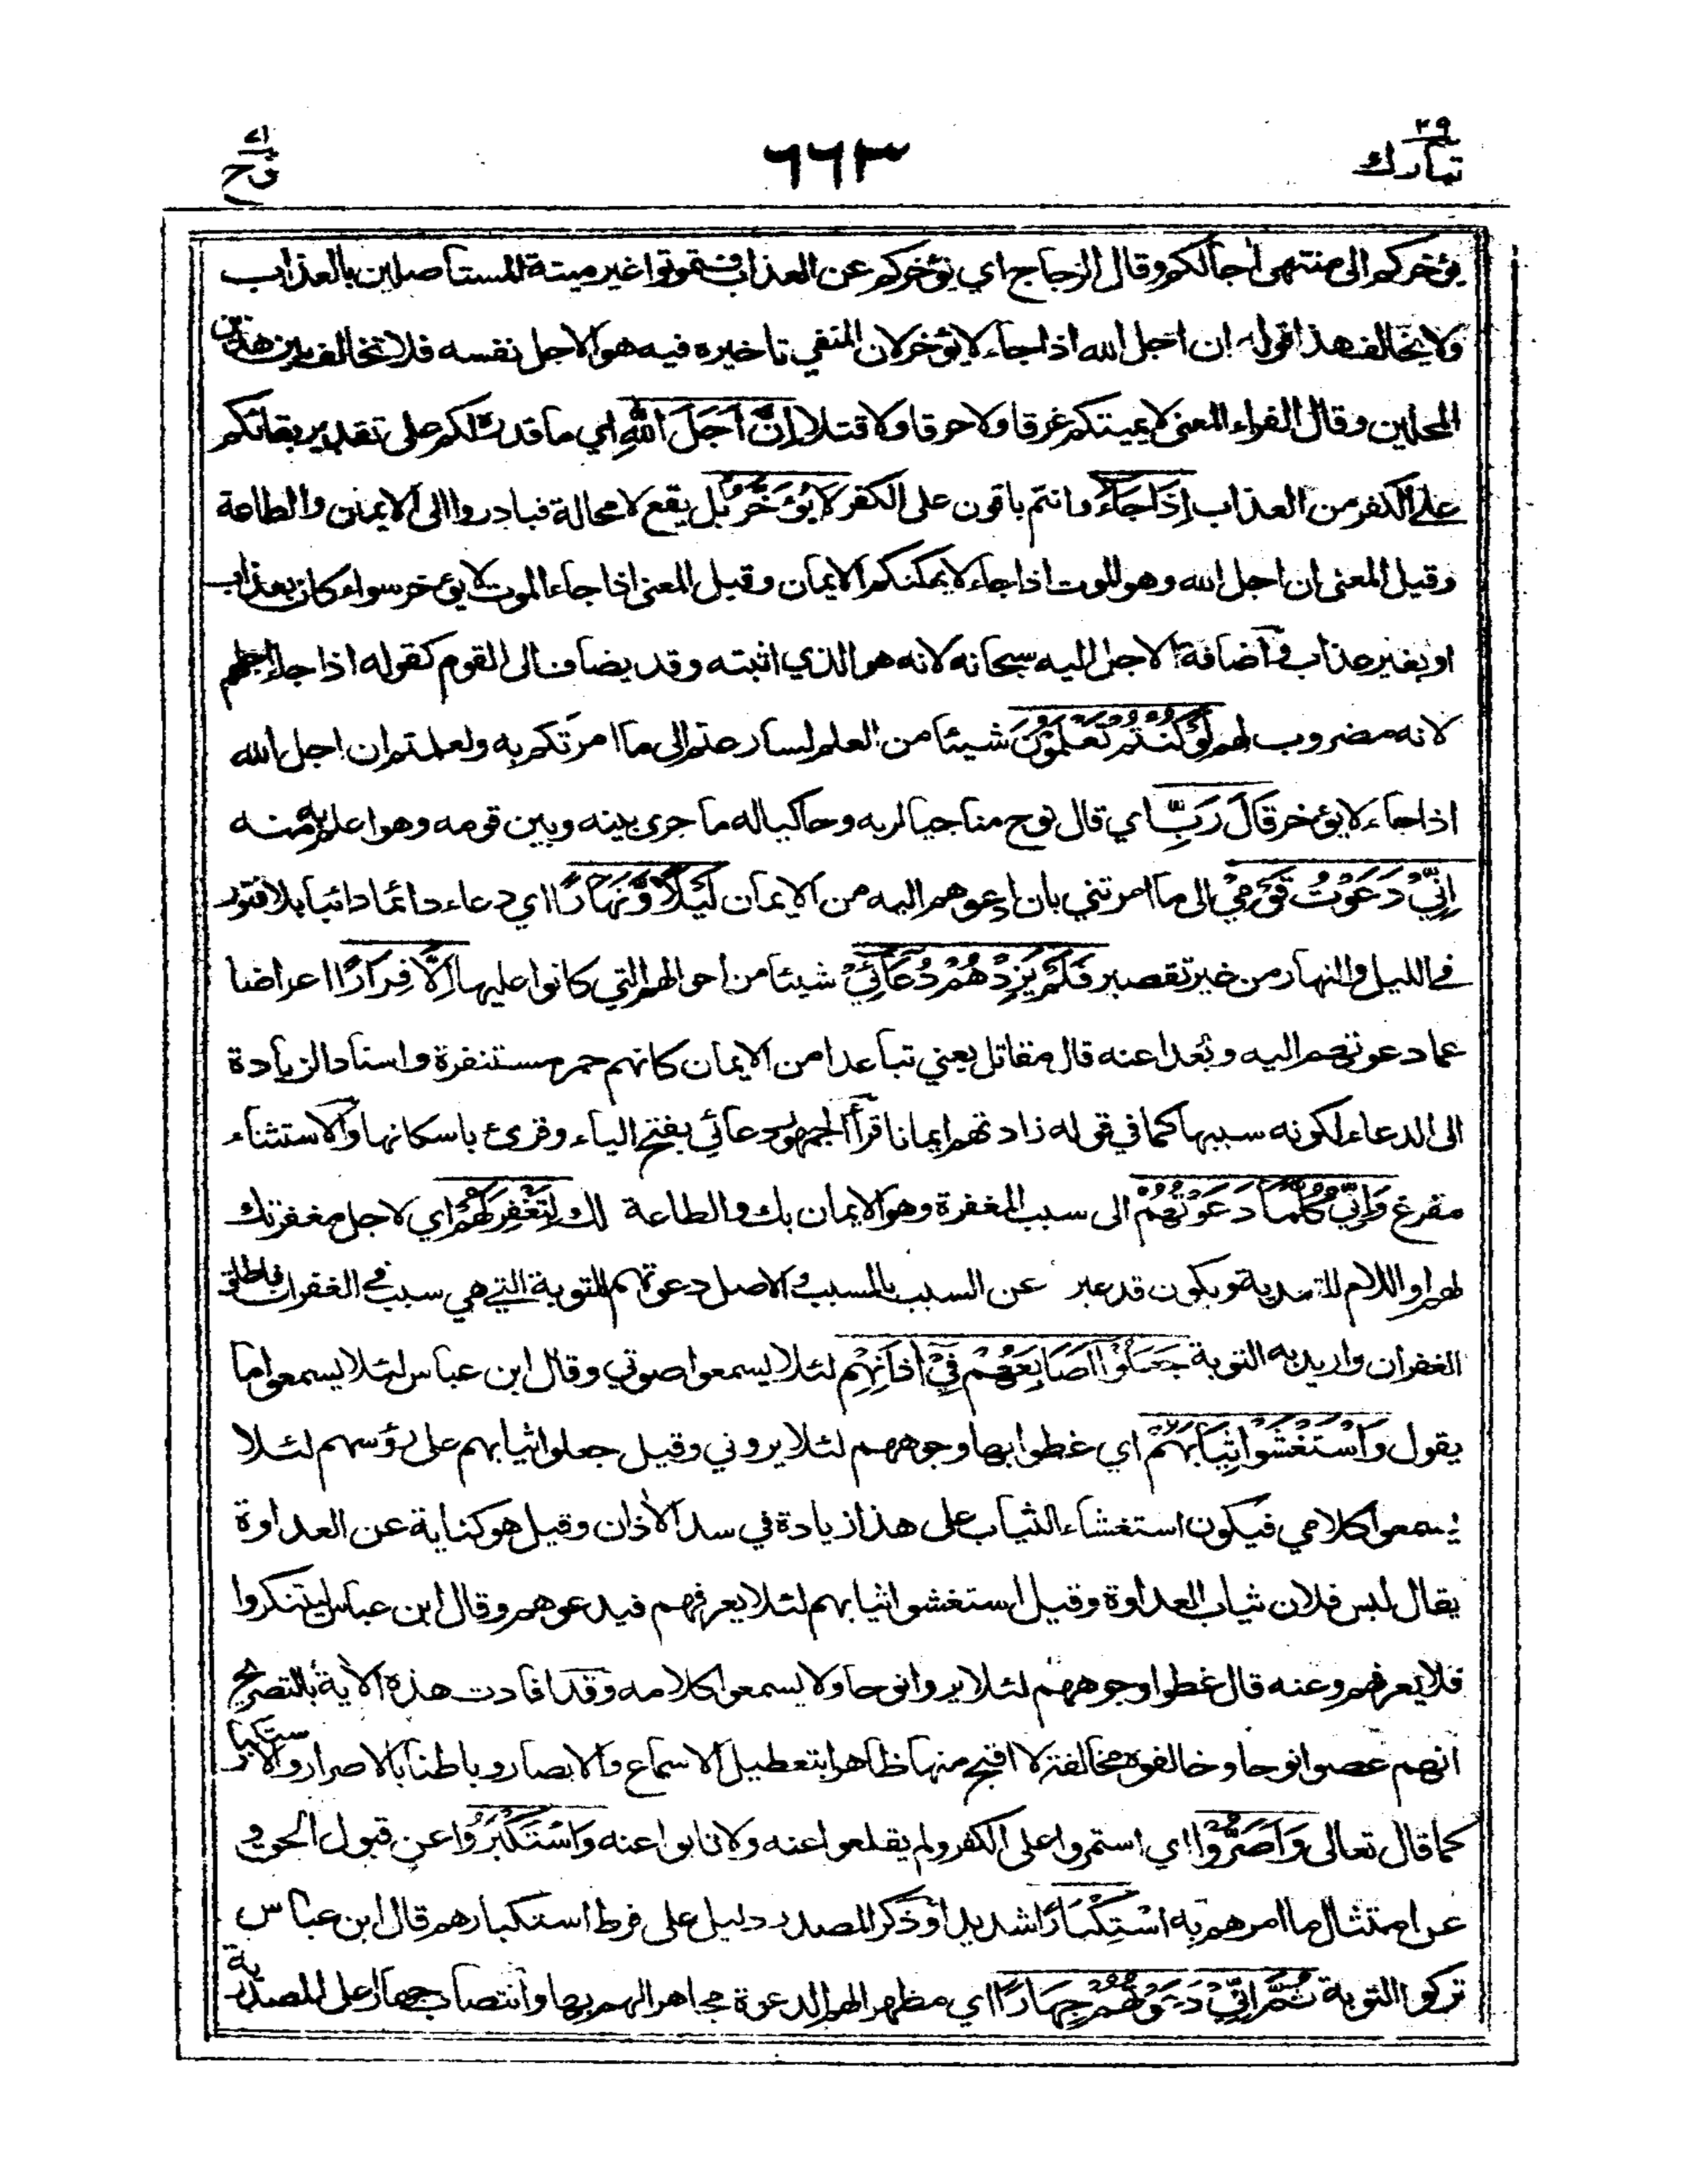 تبارك ٢٩
٦٦٣
نوح ٧١
يؤخركم الى منتهى اجالكم وقال الزجاج اي يؤخركم عن العذاب فتموتوا غير ميتة المستأصلين بالعذاب
ولا يخالف هذا قوله ان اجل الله اذا جاء لا يؤخر لان المنفي تاخيره فيه هو الاجل نفسه فلا تخالف بين هذين
المحلين وقال الفراء المعنى لا يميتكم غرقا ولا حرقا ولا قتلا اِنَّ اَجَلَ اللّٰهِ اي ما قدره لكم على تقدير بقائكم
على الكفر من العذاب اِذَا جَاءَ وانتم باقون على الكفر لَا يُؤَخَّرُ بل يقع لا محالة فبادروا الى الايمان والطاعة
وقيل المعنى ان اجل الله وهو الموت اذا جاء لا يمكنكم الايمان وقيل المعنى اذا جاء الموت لا يؤخر سواء كان بعذاب
او بغير عذاب واضافة الاجل اليه سبحانه لانه هو الذي اثبته وقد يضاف الى القوم كقوله اذا جاء اجلهم
لانه مضروب لهم لَوْ كُنْتُمْ تَعْلَمُوْنَ شيئا من العلم لسارعتم الى ما امرتكم به ولعلمتم ان اجل الله
اذا جاء لا يؤخر قَالَ رَبِّ اي قال نوح مناجيا لربه وحاكيا له ما جرى بينه وبين قومه وهو اعلم به منه
اِنِّيْ دَعَوْتُ قَوْمِيْ الى ما امرتني بان ادعوهم اليه من الايمان لَيْلًا وَّنَهَارًا اي دعاء دائما دائبا بلا فتور
في الليل والنهار من غير تقصير فَلَمْ يَزِدْهُمْ دُعَآئِيْ شيئا من احوالهم التي كانوا عليها اِلَّا فِرَارًا اعراضا
عما دعوتهم اليه وبُعدا عنه قال مقاتل يعني تباعدا من الايمان كانهم حمر مستنفرة واسناد الزيادة
الى الدعاء لكونه سببها كما في قوله زادتهم ايمانا قرأ الجمهور دعائي بفتح الياء وقرئ باسكانها والاستثناء
مفرغ وَاِنِّيْ كُلَّمَا دَعَوْتُهُمْ الى سبب المغفرة وهو الايمان بك والطاعة لك لِتَغْفِرَ لَهُمْ اي لاجل مغفرتك
لهم او اللام للتعدية ويكون قد عبر عن السبب بالمسبب والاصل دعوتهم للتوبة التي هي سبب في الغفران فاطلق
الغفران واريد به التوبة جَعَلُوْا اَصَابِعَهُمْ فِيْ اٰذَانِهِمْ لئلا يسمعوا صوتي وقال ابن عباس لئلا يسمعوا ما
يقول وَاسْتَغْشَوْا ثِيَابَهُمْ اي غطوا بها وجوههم لئلا يروني وقيل جعلوا ثيابهم على رؤسهم لئلا
يسمعوا كلامي فيكون استغشاء الثياب على هذا زيادة في سد الاٰذان وقيل هو كناية عن العداوة
يقال لبس فلان ثياب العداوة وقيل استغشوا ثيابهم لئلا يعرفهم فيدعوهم وقال ابن عباس ليتنكروا
فلا يعرفهم وعنه قال غطوا وجوههم لئلا يروا نوحا ولا يسمعوا كلامه وقد افادت هذه الاٰية بالتصريح
انهم عصوا نوحا وخالفوه مخالفة لا اقبح منها ظاهرا بتعطيل الاسماع والابصار وباطنا بالاصرار والاستكبار
كما قال تعالى وَاَصَرُّوْا اي استمروا على الكفر ولم يقلعوا عنه ولا تابوا عنه وَاسْتَكْبَرُوا عن قبول الحق و
عن امتثال ما امرهم به اسْتِكْبَارًا شديدا وذكر المصدر دليل على فرط استكبارهم قال ابن عباس
تركوا التوبة ثُمَّ اِنِّيْ دَعَوْتُهُمْ جِهَارًا اي مظهرا لهم الدعوة مجاهرا لهم بها وانتصاب جهارا على المصدرية